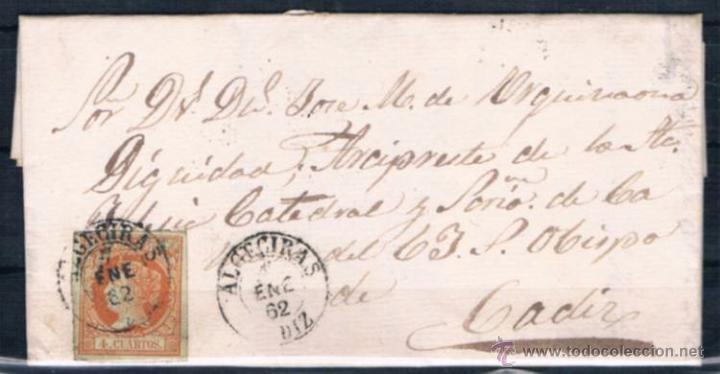 Sor Dr. Dn. Jose M. de Urquinaona
Dignidad, Arcipreste de la Sta.
Catedral y de Ca
del Y. S. Obispo
de
Cadiz
ALGECIRAS
ENE
62
4 CUARTOS
ALGECIRAS
ENE
62
DIZ
todocoleccion
© www.todocoleccion.net